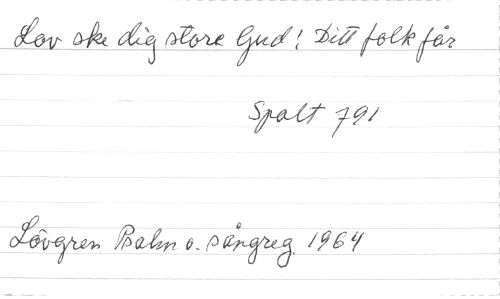 Lov ske dig store Gud! Ditt folk får
Spalt 791
Lövgren Psalm o. sångreg. 1964